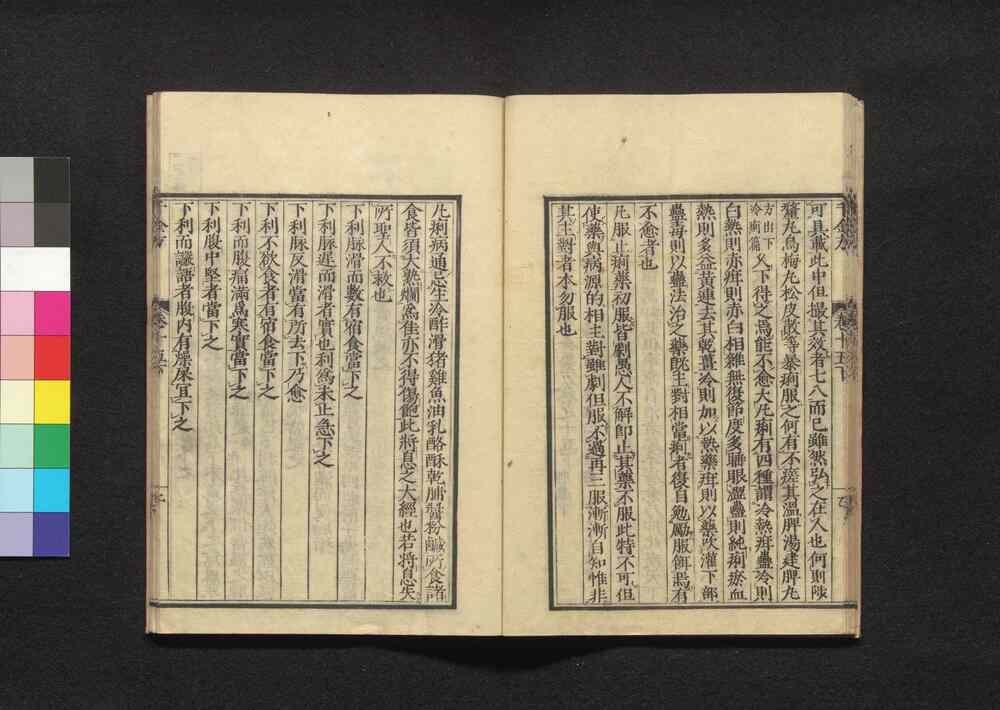 可具載此中但撮其效者七八而已雖然弘之在人也何則陟
釐丸烏梅丸松皮散等暴痢服之何有不瘥其溫脾湯建脾丸
方出下冷痢篇又下得之焉能不愈大凡痢有四種謂冷熱疳蠱冷則
白熱則赤疳則赤白相雜無復節度多睡眼澀蠱則純痢瘀血
熱則多益黃連去其乾薑冷則加以熱藥疳則以藥吹灌下部
蠱毒則以蠱法治之藥既主對相當痢者復自勉勵服餌焉有
不愈者也
凡服止痢藥初服皆劇愚人不解即止其藥不服此特不可但
使藥與病源的相主對雖劇但服不過再三服漸漸自知惟非
其主對者本勿服也
凡痢病通忌生冷酢滑猪雞魚油乳酪酥乾脯醬粉鹹所食諸
食皆須大熟爛爲佳亦不得傷飽此將息之大經也若將息失
所聖人不救也
下利脉滑而數有宿食當下之
下利脉遲而滑者實也利爲未止急下之
下利脉反滑當有所去下乃愈
下利不欲食者有宿食當下之
下利而腹痛滿爲寒實當下之
下利腹中堅者當下之
下利而讝語者腹內有燥屎宜下之